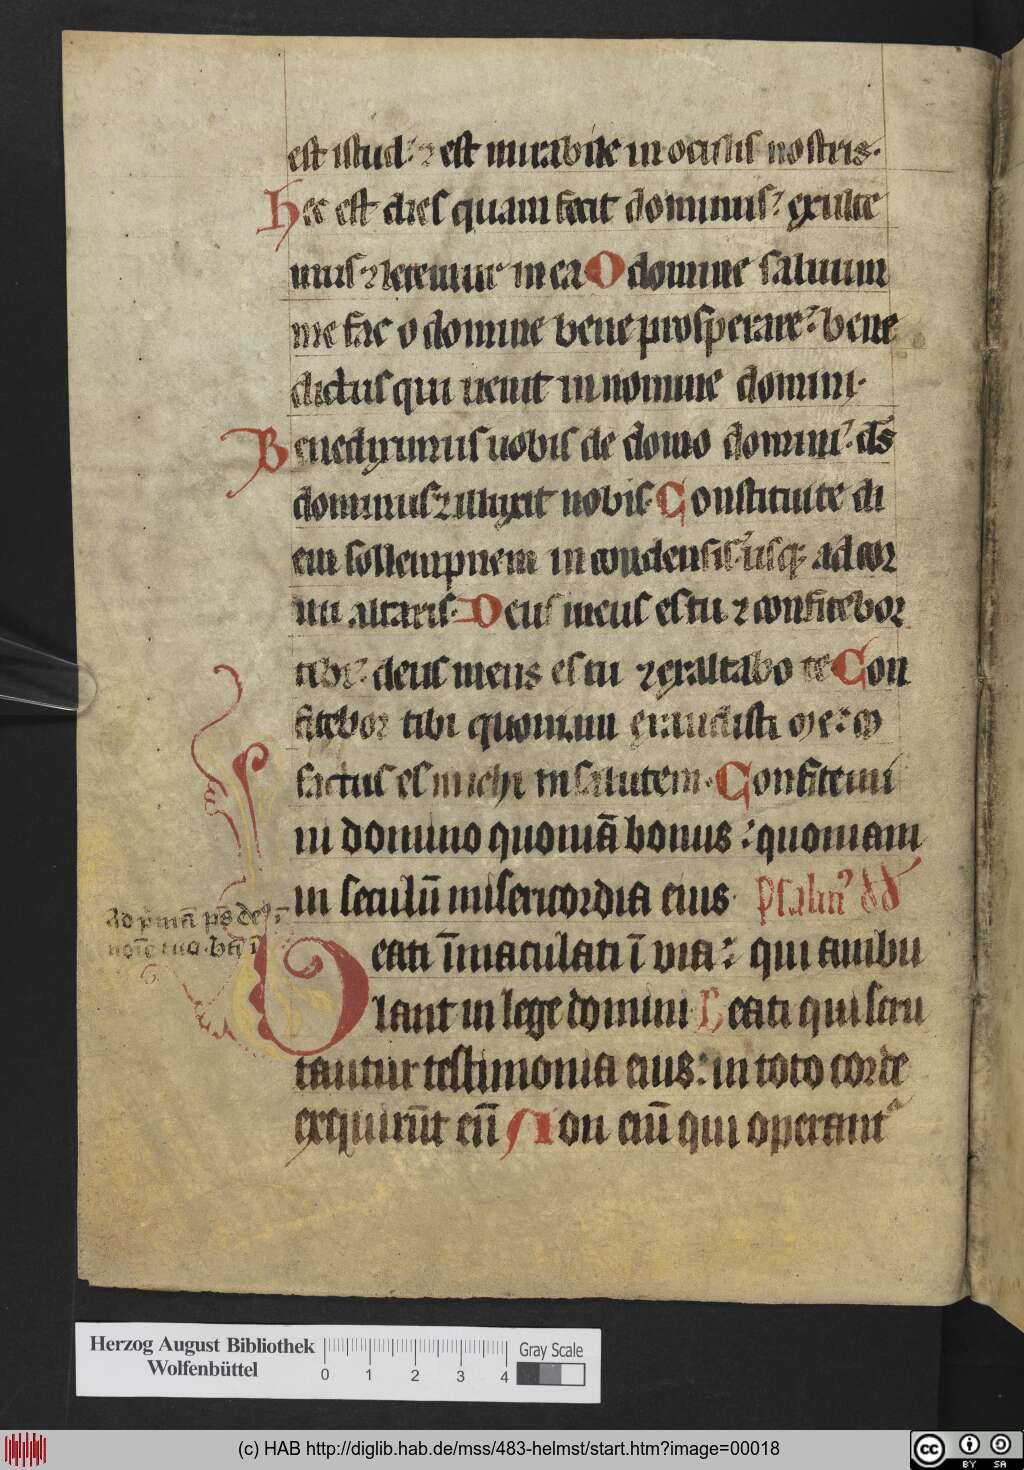 est istud: ⁊ est mirabile in oculis nostris.
Hec est dies quam fecit dominus: exulte
mus ⁊ letemur in ea O domine saluum
me fac o domine bene prosperare: bene
dictus qui uenit in nomine domini.
Benediximus uobis de domo domini: ds̄
dominus ⁊ illuxit nobis. Constituite di
em sollempnem in condensis: usq; ad cor
nu altaris. Deus meus es tu ⁊ confitebor
tibi: deus meus es tu ⁊ exaltabo te Con
fitebor tibi quoniam exaudisti me: ⁊
factus es michi in salutem. Confitemi
ni domino quoniā bonus: quoniam
in seculū misericordia eius. Psalm' dd
Ad primā ps̄ deꝰ ī
noīe tuo. btī ī
Beati īmaculati ī via: qui ambu
lant in lege domini Beati qui scru
tantur testimonia eius: in toto corde
exquirūt eū Non eni̅ qui operantᷣ
Herzog August Bibliothek
Wolfenbüttel
0 1 2 3 4
Gray Scale
(c) HAB http://diglib.hab.de/mss/483-helmst/start.htm?image=00018
cc BY SA